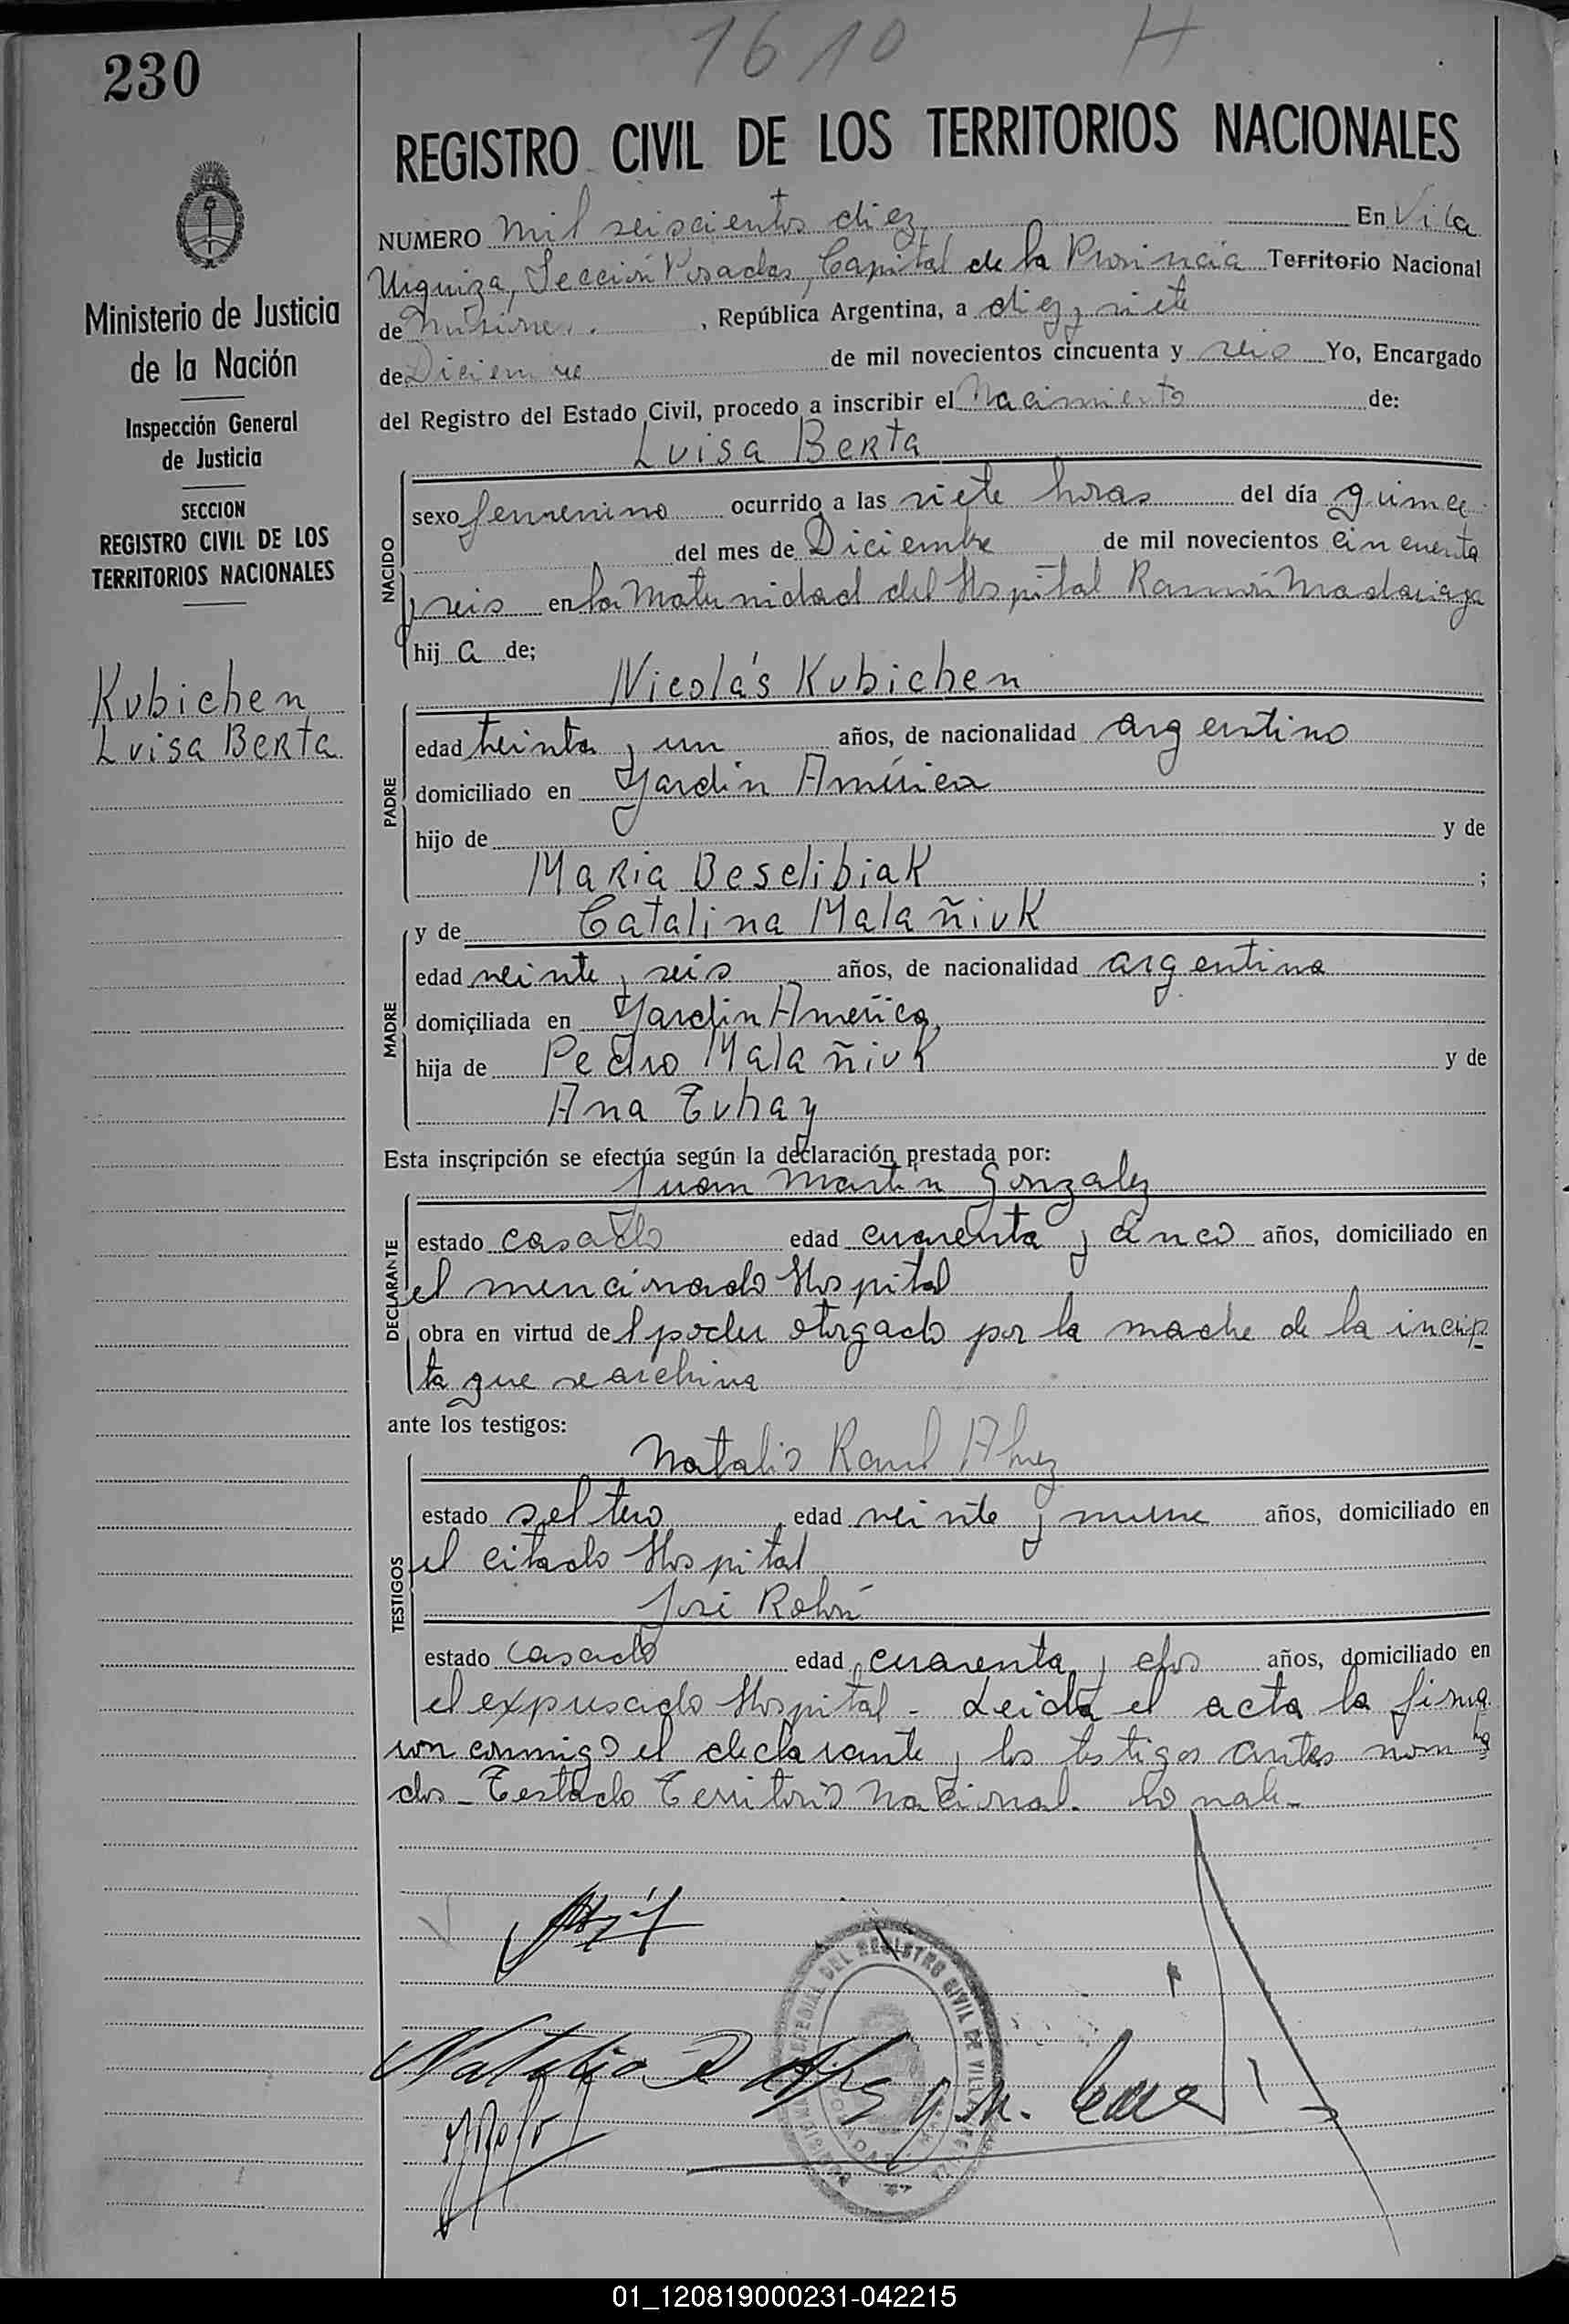 1610 H
230
REGISTRO CIVIL DE LOS TERRITORIOS NACIONALES
NUMERO mil seiscientos diez En Villa
Urquiza, Sección Posadas, Capital de la Provincia Territorio Nacional
de Misiones. , República Argentina, a diez y siete
de Diciembre de mil novecientos cincuenta y seis Yo, Encargado
del Registro del Estado Civil, procedo a inscribir el Nacimiento de:
Luisa Berta
NACIDO
sexo femenino ocurrido a las siete horas del día quince
del mes de Diciembre de mil novecientos cincuenta
y seis en la Maternidad del Hospital Ramón Madariaga
hij a de;
Nicolás Kubichen
PADRE
edad treinta y un años, de nacionalidad argentino
domiciliado en Jardin América
hijo de y de
Maria Beselibiak ;
y de Catalina Malañiuk
MADRE
edad veinte y seis años, de nacionalidad argentina
domiciliada en Jardin América,
hija de Pedro Malañiuk y de
Ana Tuhay
Esta inscripción se efectúa según la declaración prestada por:
Juan Martin Gonzalez
DECLARANTE
estado casado edad cuarenta y cinco años, domiciliado en
el mencionado Hospital
obra en virtud del poder otorgado por la madre de la incrip
ta que se archiva
ante los testigos:
Natalio Raul
TESTIGOS
estado soltero edad veinte y nueve años, domiciliado en
el citado Hospital
José
estado casado edad cuarenta y dos años, domiciliado en
el expresado Hospital - Leida el acta la firma
ron conmigo el declarante y los testigos antes nombra
dos - Testado Territorio Nacional. no vale -
Ministerio de Justicia
de la Nación
Inspección General
de Justicia
SECCION
REGISTRO CIVIL DE LOS
TERRITORIOS NACIONALES
Kubichen
Luisa Berta
Natalio R
DEL REGISTRO CIVIL DE VILLA
01_120819000231-042215